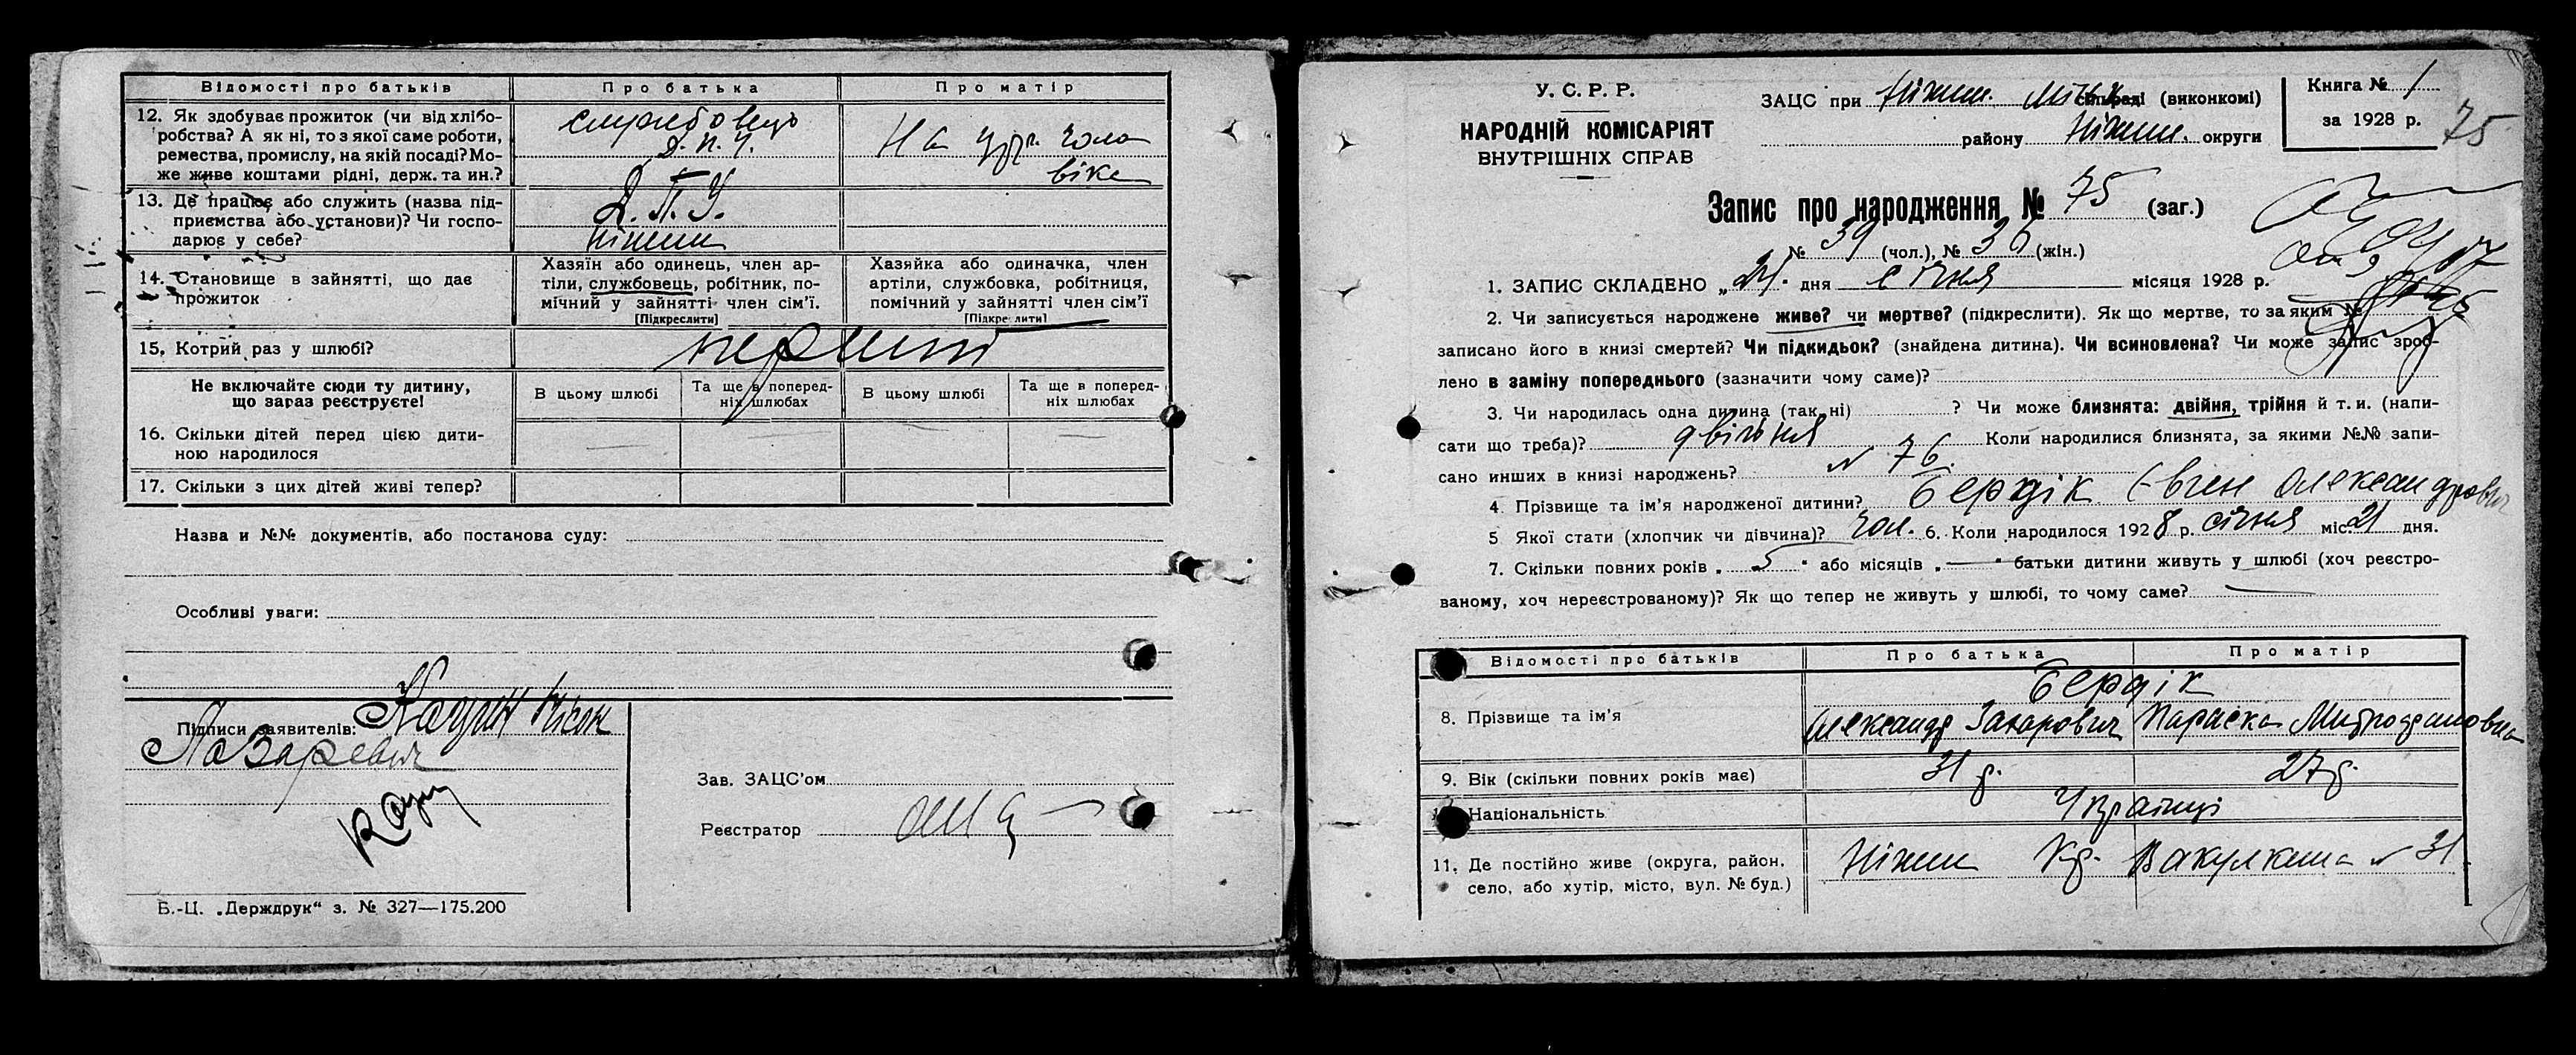 Відомості про батьків
Про батька
Про матір
12. Як здобуває прожиток (чи від хлібо-
робства? А як ні, то з якої саме роботи,
ремества, промислу, на якій посаді? Мо-
же живе коштами рідні, держ. та ин.?
службовець
Д.П.У.
На утр. чоло
віка
13. Де працює або служить (назва під-
приємства або установи)? Чи госпо-
дарює у себе?
Д.П.У.
Ніжин
14. Становище в зайнятті, що дає
прожиток
Хазяїн або одинець, член ар-
тіли, службовець, робітник, по-
мічний у зайнятті член сім'ї.
[Підкреслити]
Хазяйка або одиначка, член
артіли, службовка, робітниця,
помічний у зайнятті член сім'ї
[Підкреслити]
15. Котрий раз у шлюбі?
перший
Не включайте сюди ту дитину,
що зараз реєструєте!
В цьому шлюбі
Та ще в поперед-
ніх шлюбах
В цьому шлюбі
Та ще в поперед-
ніх шлюбах
16. Скільки дітей перед цією дити-
ною народилося
17. Скільки з цих дітей живі тепер?
Назва и №№ документів, або постанова суду:
Особливі уваги:
Підписи заявителів:
Лазаревич
Зав. ЗАЦС'ом
Реєстратор
Б.-Ц. „Держдрук“ з. № 327—175.200
У. С. Р. Р.
НАРОДНІЙ КОМІСАРІЯТ
ВНУТРІШНІХ СПРАВ
ЗАЦС при Ніжин. сільраді (виконкомі)
району Ніжин. округи
Книга № 1
за 1928 р.
75
Запис про народження № 75 (заг.)
№ 39 (чол.), № 36 (жін.)
1. ЗАПИС СКЛАДЕНО „24. дня січня місяця 1928 р.
2. Чи записується народжене живе? чи мертве? (підкреслити). Як що мертве, то за яким №
записано його в книзі смертей? Чи підкидьок? (знайдена дитина). Чи всиновлена? Чи може запис зроб-
лено в заміну попереднього (зазначити чому саме)?
3. Чи народилась одна дитина (так, ні) ? Чи може близнята: двійня, трійня й т. и. (напи-
сати що треба)? двійня Коли народилися близнята, за якими №№ запи-
сано инших в книзі народжень? № 76.
4. Прізвище та ім'я народженої дитини? Бердік Євген Олександрович
5 Якої стати (хлопчик чи дівчина)? чол. 6. Коли народилося 1928 р. січня міс. 21 дня.
7. Скільки повних років „ 5 " або місяців „ — " батьки дитини живуть у шлюбі (хоч реєстро-
ваному, хоч нереєстрованому)? Як що тепер не живуть у шлюбі, то чому саме? —
Відомості про батьків
Про батька
Про матір
Бердік
8. Прізвище та ім'я
Олександр Захарович
Параска Митрофановна
9. Вік (скільки повних років має)
31 р.
27 р.
Національність
Українці
11. Де постійно живе (округа, район.
село, або хутір, місто, вул. № буд.)
Ніжин
Вакулкина № 31.